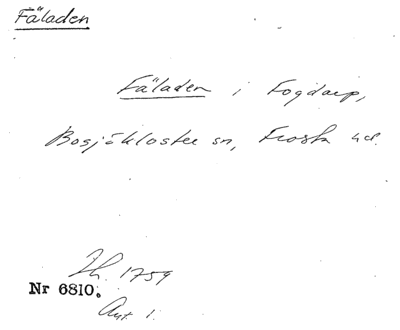 Fäladen
Fäladen i Fogdarp,
Bosjökloster sn, Frosta hd.
Jh. 1759
Nr 6810.
Ant. 1.